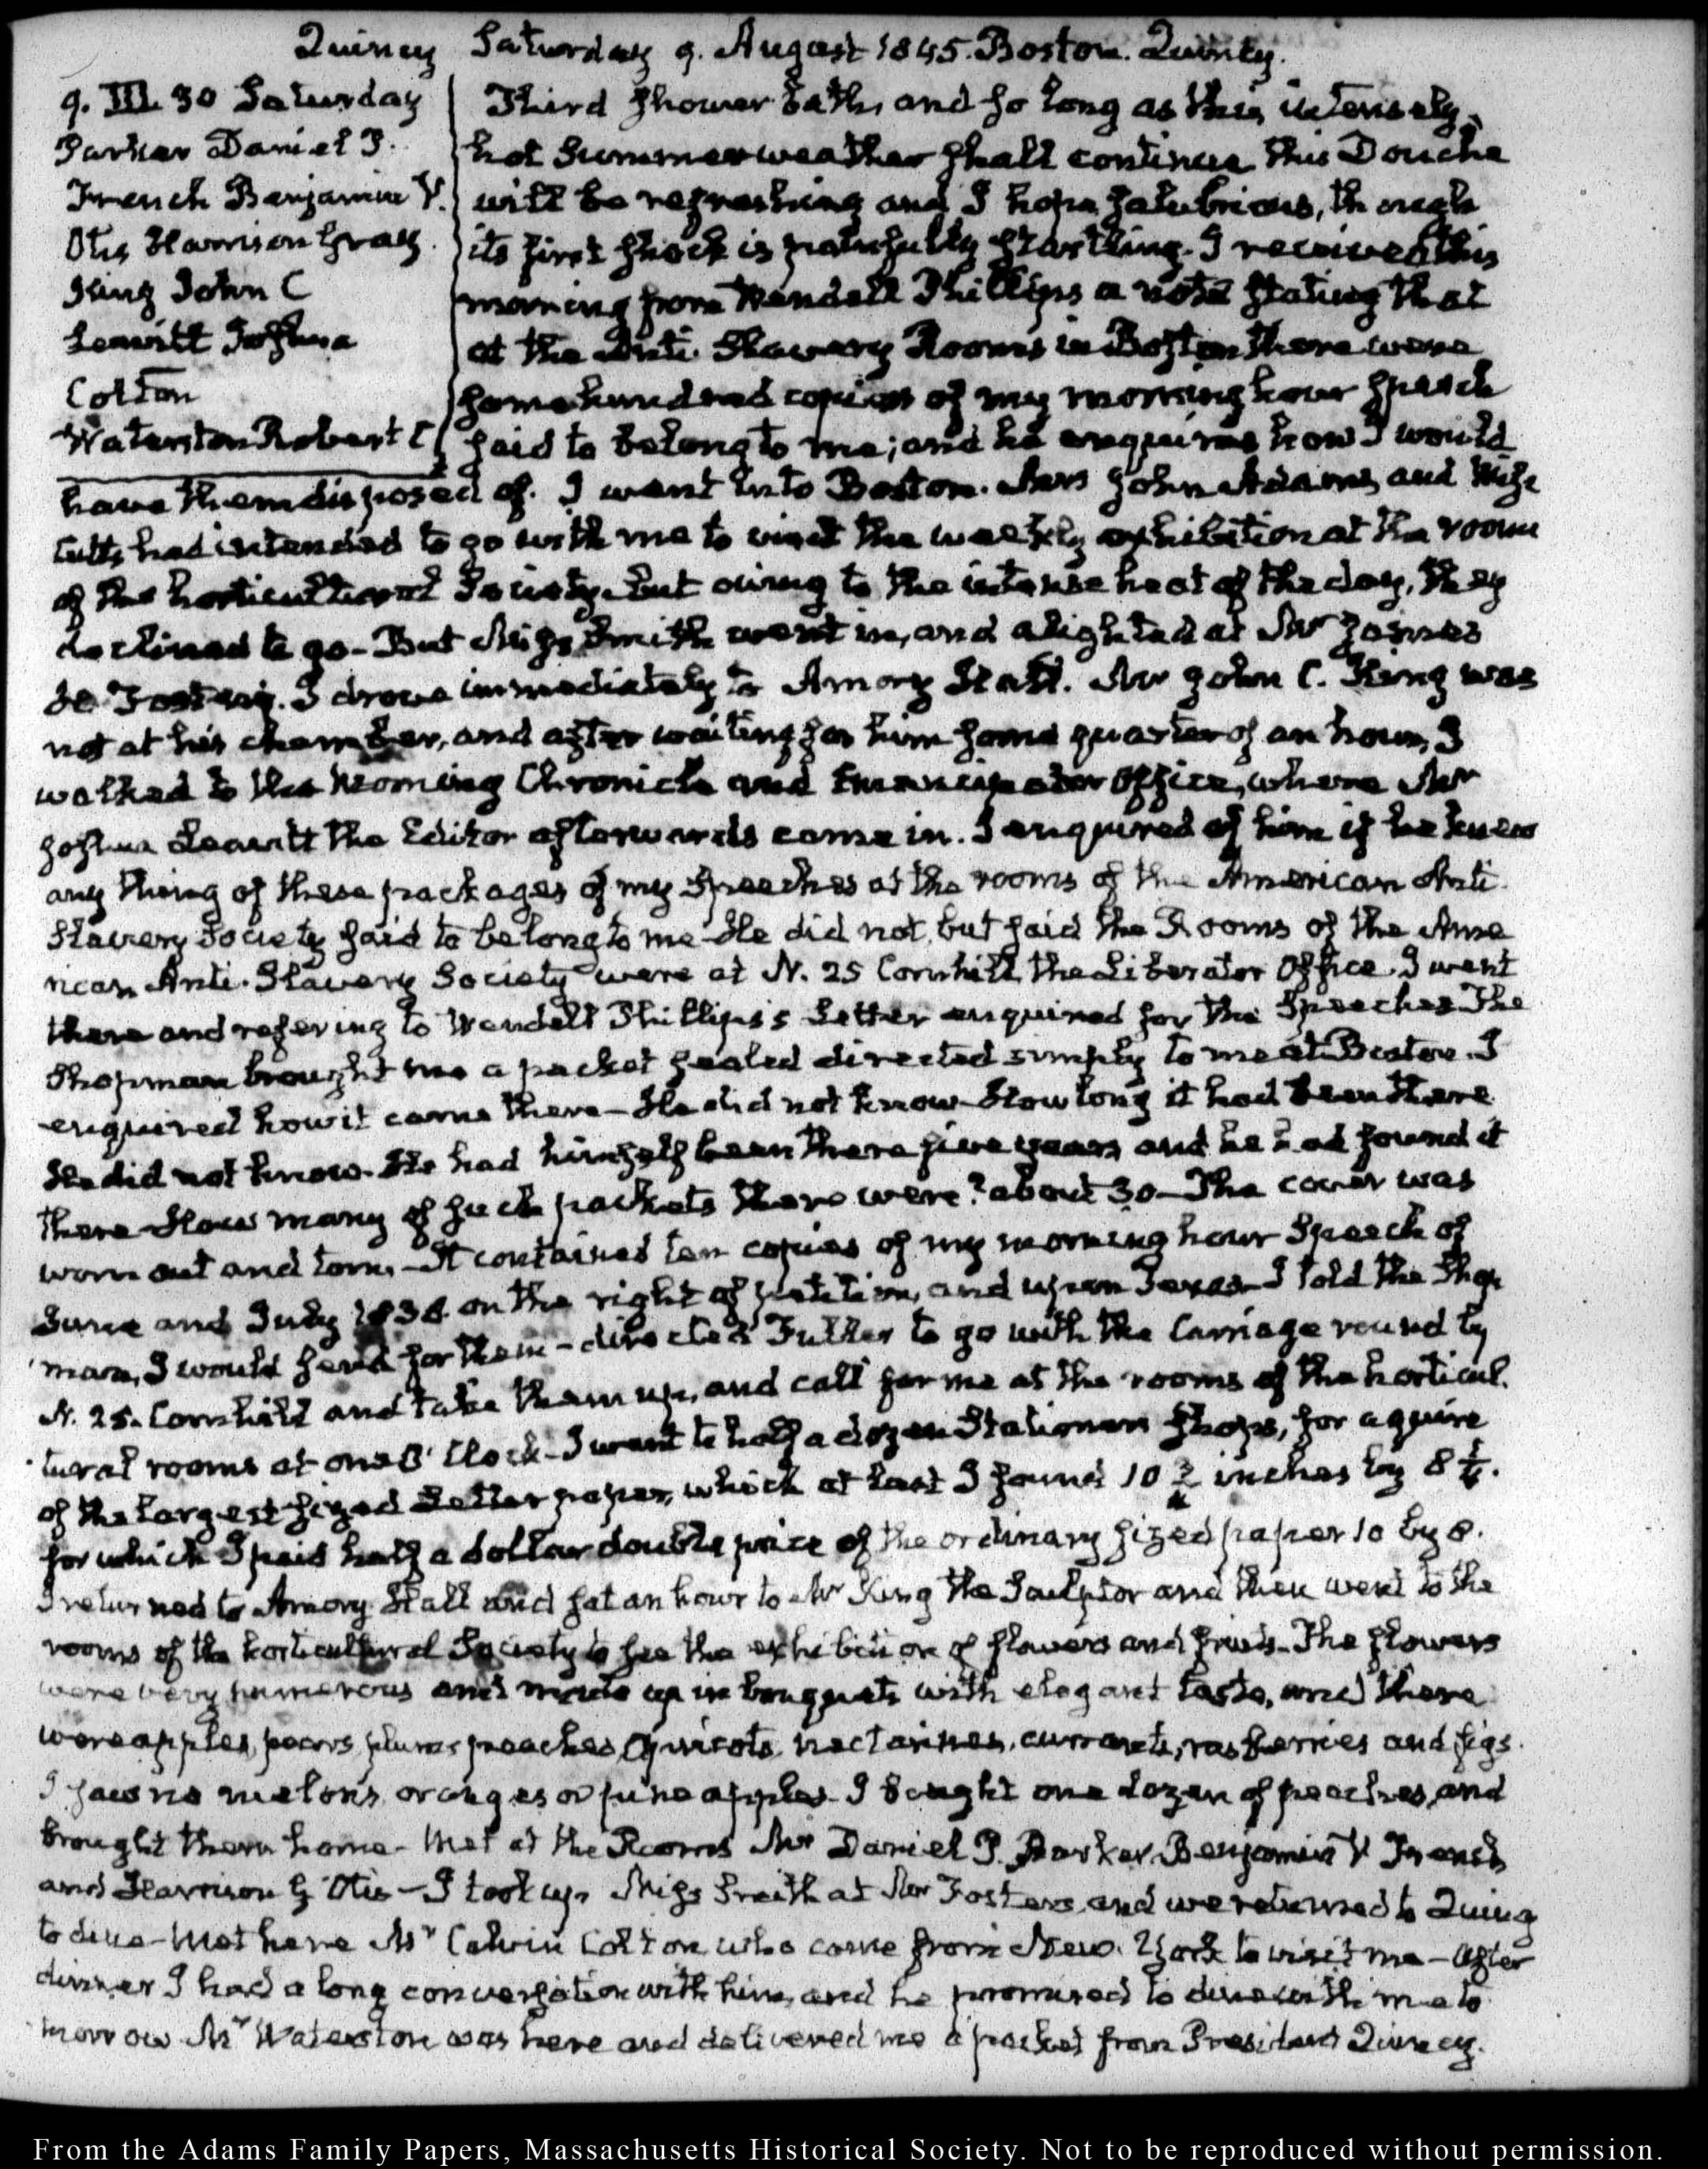 Quincy Saturday 9. August 1845. Boston. Quincy.
9. III. 30 Saturday
Parker Daniel P.
French Benjamin V.
Otis Harrison Gray.
King John C
Leavitt Joshua
Colton
Waterston Robert C
Third Shower Bath, and so long as this intensely
hot Summer weather shall continue this Douche
will be refreshing and I hope salubrious, though
its first shock is painfully startling. I received this
morning from Wendell Phillips a note stating that
at the Anti-Slavery Rooms in Boston there were
some hundred copies of my morning hour speech
said to belong to me; and he enquires how I would
have them disposed of. I went into Boston. Mrs John Adams and Miss
Cutts had intended to go with me to visit the weekly exhibition at the room
of the horticultural Society. but owing to the intense heat of the day, they
declined to go- But Miss Smith went in, and alighted at Mr James
H. Foster's. I drove immediately to Amory Hall. Mr John C. King was
not at his chamber, and after waiting for him some quarter of an hour, I
walked to the Morning Chronicle and Emancipator Office, where Mr
Joshua Leavitt the Editor afterwards came in. I enquired of him if he knew
any thing of these packages of my Speeches at the rooms of the American Anti-
Slavery Society said to belong to me- He did not, but said the Rooms of the Ame
rican Anti-Slavery Society were at N. 25 Cornhill, the Liberator Office. I went
there and refering to Wendell Phillips's Letter enquired for the Speeches. The
Shopman brought me a packet sealed directed simply to me at Boston. I
enquired how it came there- He did not know- How long it had been there
He did not know. He had himself been there five years and he had found it
there- How many of such packets there were? about 30- The cover was
worn out and torn. It contained ten copies of my morning hour Speech of
June and July 1838. on the right of petition, and upon Texas- I told the Shop
man, I would send for them- directed Fuller to go with the Carriage round by
N. 25. Cornhill and take them up, and call for me at the rooms of the horticul.
tural rooms at one O'Clock- I went to half a dozen Stationers shops, for a quire
of the largest sized Letter paper, which at last I found 10 3/4 inches by 8 1/4.
for which I paid half a dollar double price of the ordinary sized paper 10 by 8.
I returned to Amory Hall and sat an hour to Mr King the Sculptor and then went to the
rooms of the horticultural Society to see the exhibition of flowers and fruits- The flowers
were very numerous and made up in bouquets with elegant taste, and there
were apples, pears, plums, peaches, apricots, nectarines, currants, rasberries and figs.
I saw no melons, oranges or pine apples- I bought one dozen of peaches, and
brought them home- Met at the Rooms Mr Daniel P. Parker, Benjamin V French
and Harrison G Otis- I took up Miss Smith at Mr Foster's, and we returned to Quincy
to dine- Met here Mr Calvin Colton who came from New. York to visit me- After
dinner I had a long conversation with him, and he promised to dine with me to
morrow Mr Waterston was here and delivered me a packet from President Quincy.
From the Adams Family Papers, Massachusetts Historical Society. Not to be reproduced without permission.